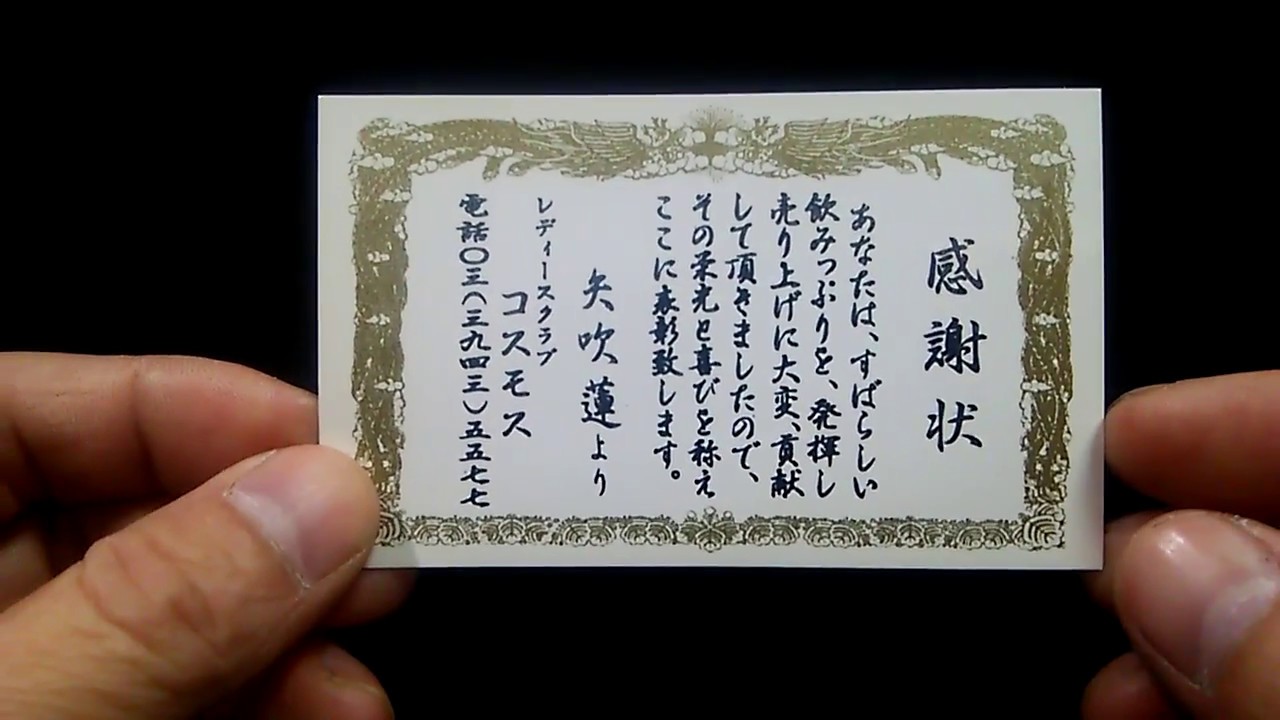 感謝状
あなたは、すばらしい
飲みっぷりを、発揮し
売り上げに大変、貢献
して頂きましたので、
その栄光と喜びを称え
ここに表彰致します。
矢吹蓮より
レディースクラブ
コスモス
電話〇三(三九四三)五五七七